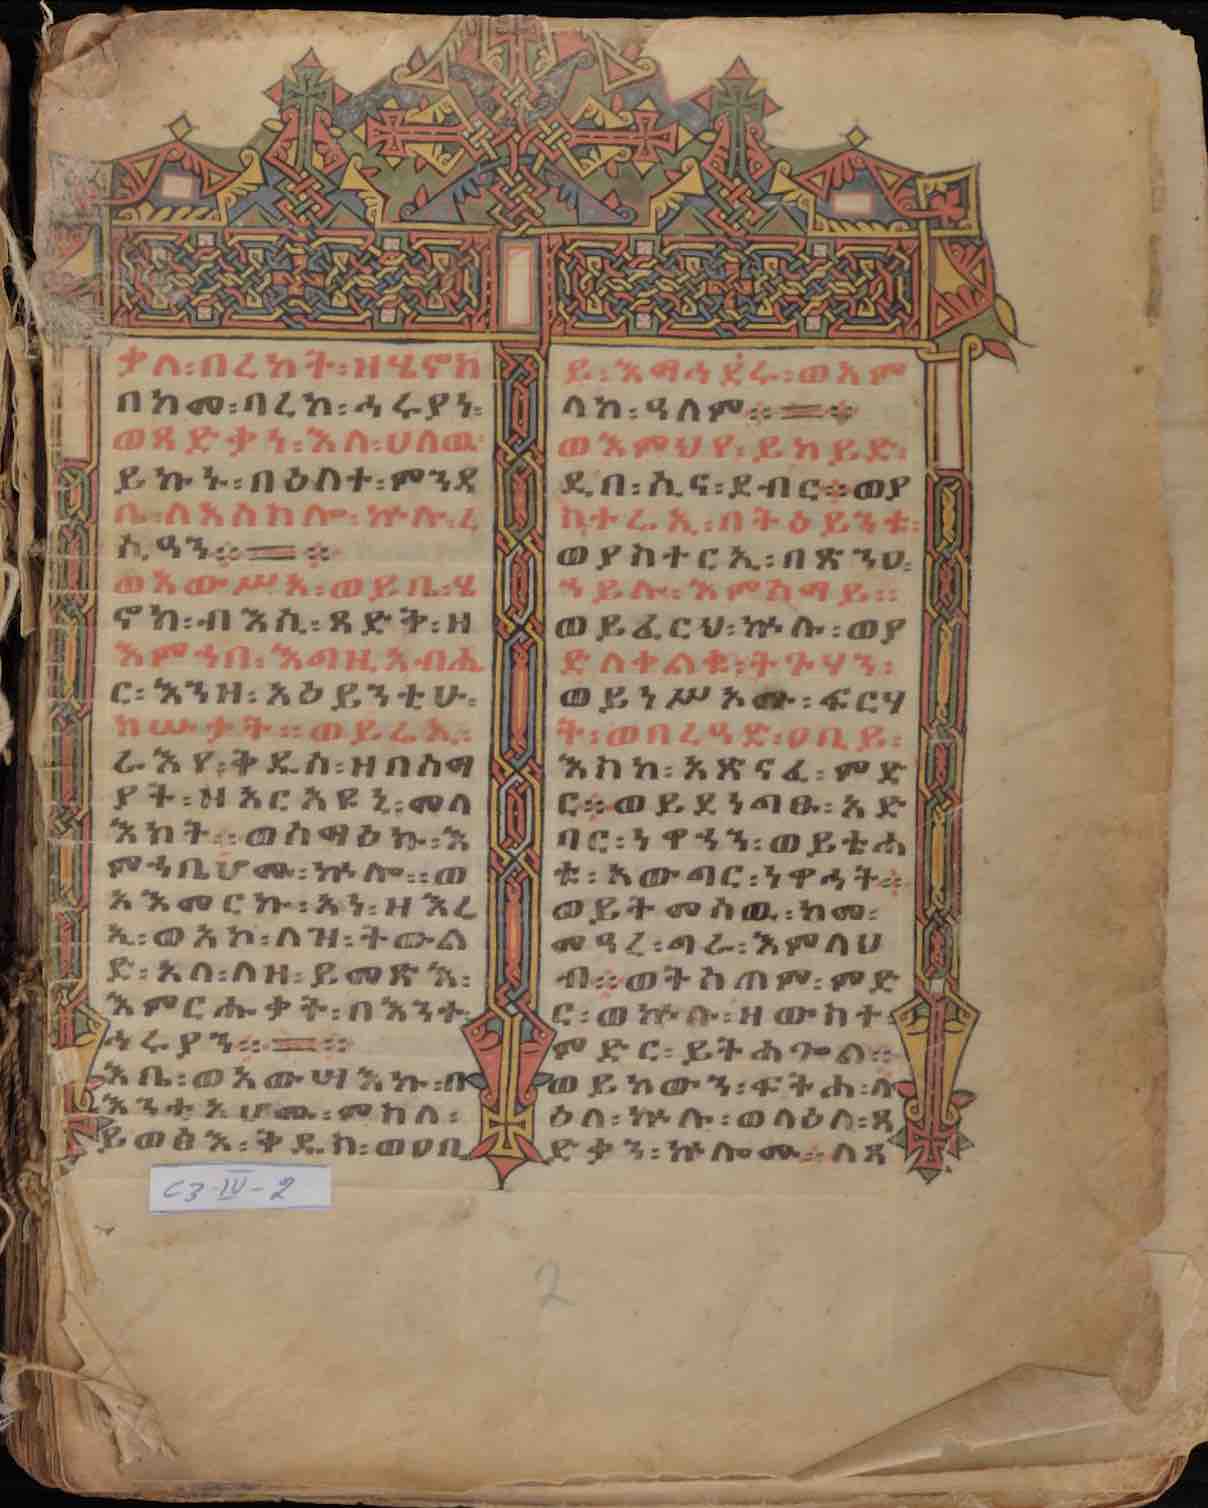 ቃለ፡በረከት፡ዘሄኖክ
በከመ፡ባረከ፡ኅሩያነ፡
ወጻድቃነ፡እለ፡ሀለዉ፡
ይኩኑ፡በዕለተ፡ምንዳ
ቤ፡ለአሰስሎ፡ኵሉ፡ረ
ሲዓን፨
ወአውሥአ፡ወይቤ፡ሄ
ኖክ፡ብእሲ፡ጻድቅ፡ዘ
እምኀበ፡እግዚአብሔ
ር፡እንዘ፡አዕይንቲሁ፡
ከሡታት፡፡ወይሬኢ፡
ራእየ፡ቅዱስ፡ዘበሰማ
ያት፡ዘአርአዩኒ፡መላ
እክት፡፡ወሰማዕኩ፡እ
ምኀቤሆሙ፡ኵሎ፡፡ወ
አእመርኩ፡አነ፡ዘእሬ
ኢ፡ወአኮ፡ለዝ፡ትውል
ድ፡አላ፡ለዘ፡ይመጽእ፡
እምርሑቃት፡በእንተ፡
ኅሩያን፨
እቤ፡ወአውሣእኩ፡በ
እንቲአሆሙ፡ምስለ፡
ይወፅእ፡ቅዱስ፡ወዐቢ
ይ፡እማኅደሩ፡ወአም
ላከ፡ዓለም፨
ወእምህየ፡ይከይድ፡
ዲበ፡ሲና፡ደብር፨ወያ
ስተሬኢ፡በትዕይንቱ፡
ወያስተርኢ፡በጽንዐ፡
ኀይሉ፡እምሰማይ፡፡
ወይፈርህ፡ኵሉ፡ወያ
ድለቀልቁ፡ትጉሃን፡
ወይነሥኦሙ፡ፍርሃ
ት፡ወበረዓድ፡ዐቢይ፡
እስከ፡አጽናፈ፡ምድ
ር፨ወይደነግፁ፡አድ
ባር፡ነዋኃን፡ወይቴሐ
ቱ፡አውግር፡ነዋኃት፨
ወይትመሰዉ፡ከመ፡
መዓረ፡ግራ፡እምላህ
ብ፨ወትሰጠም፡ምድ
ር፡ወኵሉ፡ዘውስተ፡
ምድር፡ይትሐጐል፡፡
ወይከውን፡ፍትሐ፡ላ
ዕለ፡ኵሉ፡ወላዕለ፡ጻ
ድቃን፡ኵሎሙ፨ለጻ
C3-IV-2
2